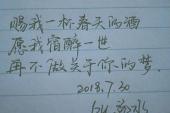 赐我一杯春天的酒
愿我宿醉一世
再不做关于你的梦.
2018.7.30
by